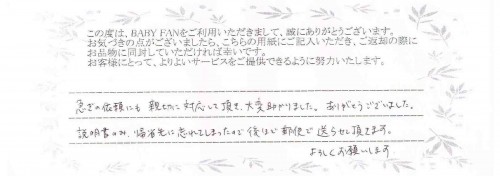 この度は、BABY FANをご利用いただきまして、誠にありがとうございます。
お気づきの点がございましたら、こちらの用紙にご記入いただき、ご返却の際に
お品物に同封していただければ幸いです。
お客様にとって、よりよいサービスをご提供できるように努力いたします。
急ぎの依頼にも親切に対応して頂き、大変助かりました。ありがとうございました。
説明書のみ、帰省先に忘れてしまったので後ほど郵便で送らせて頂きます。
よろしくお願いします